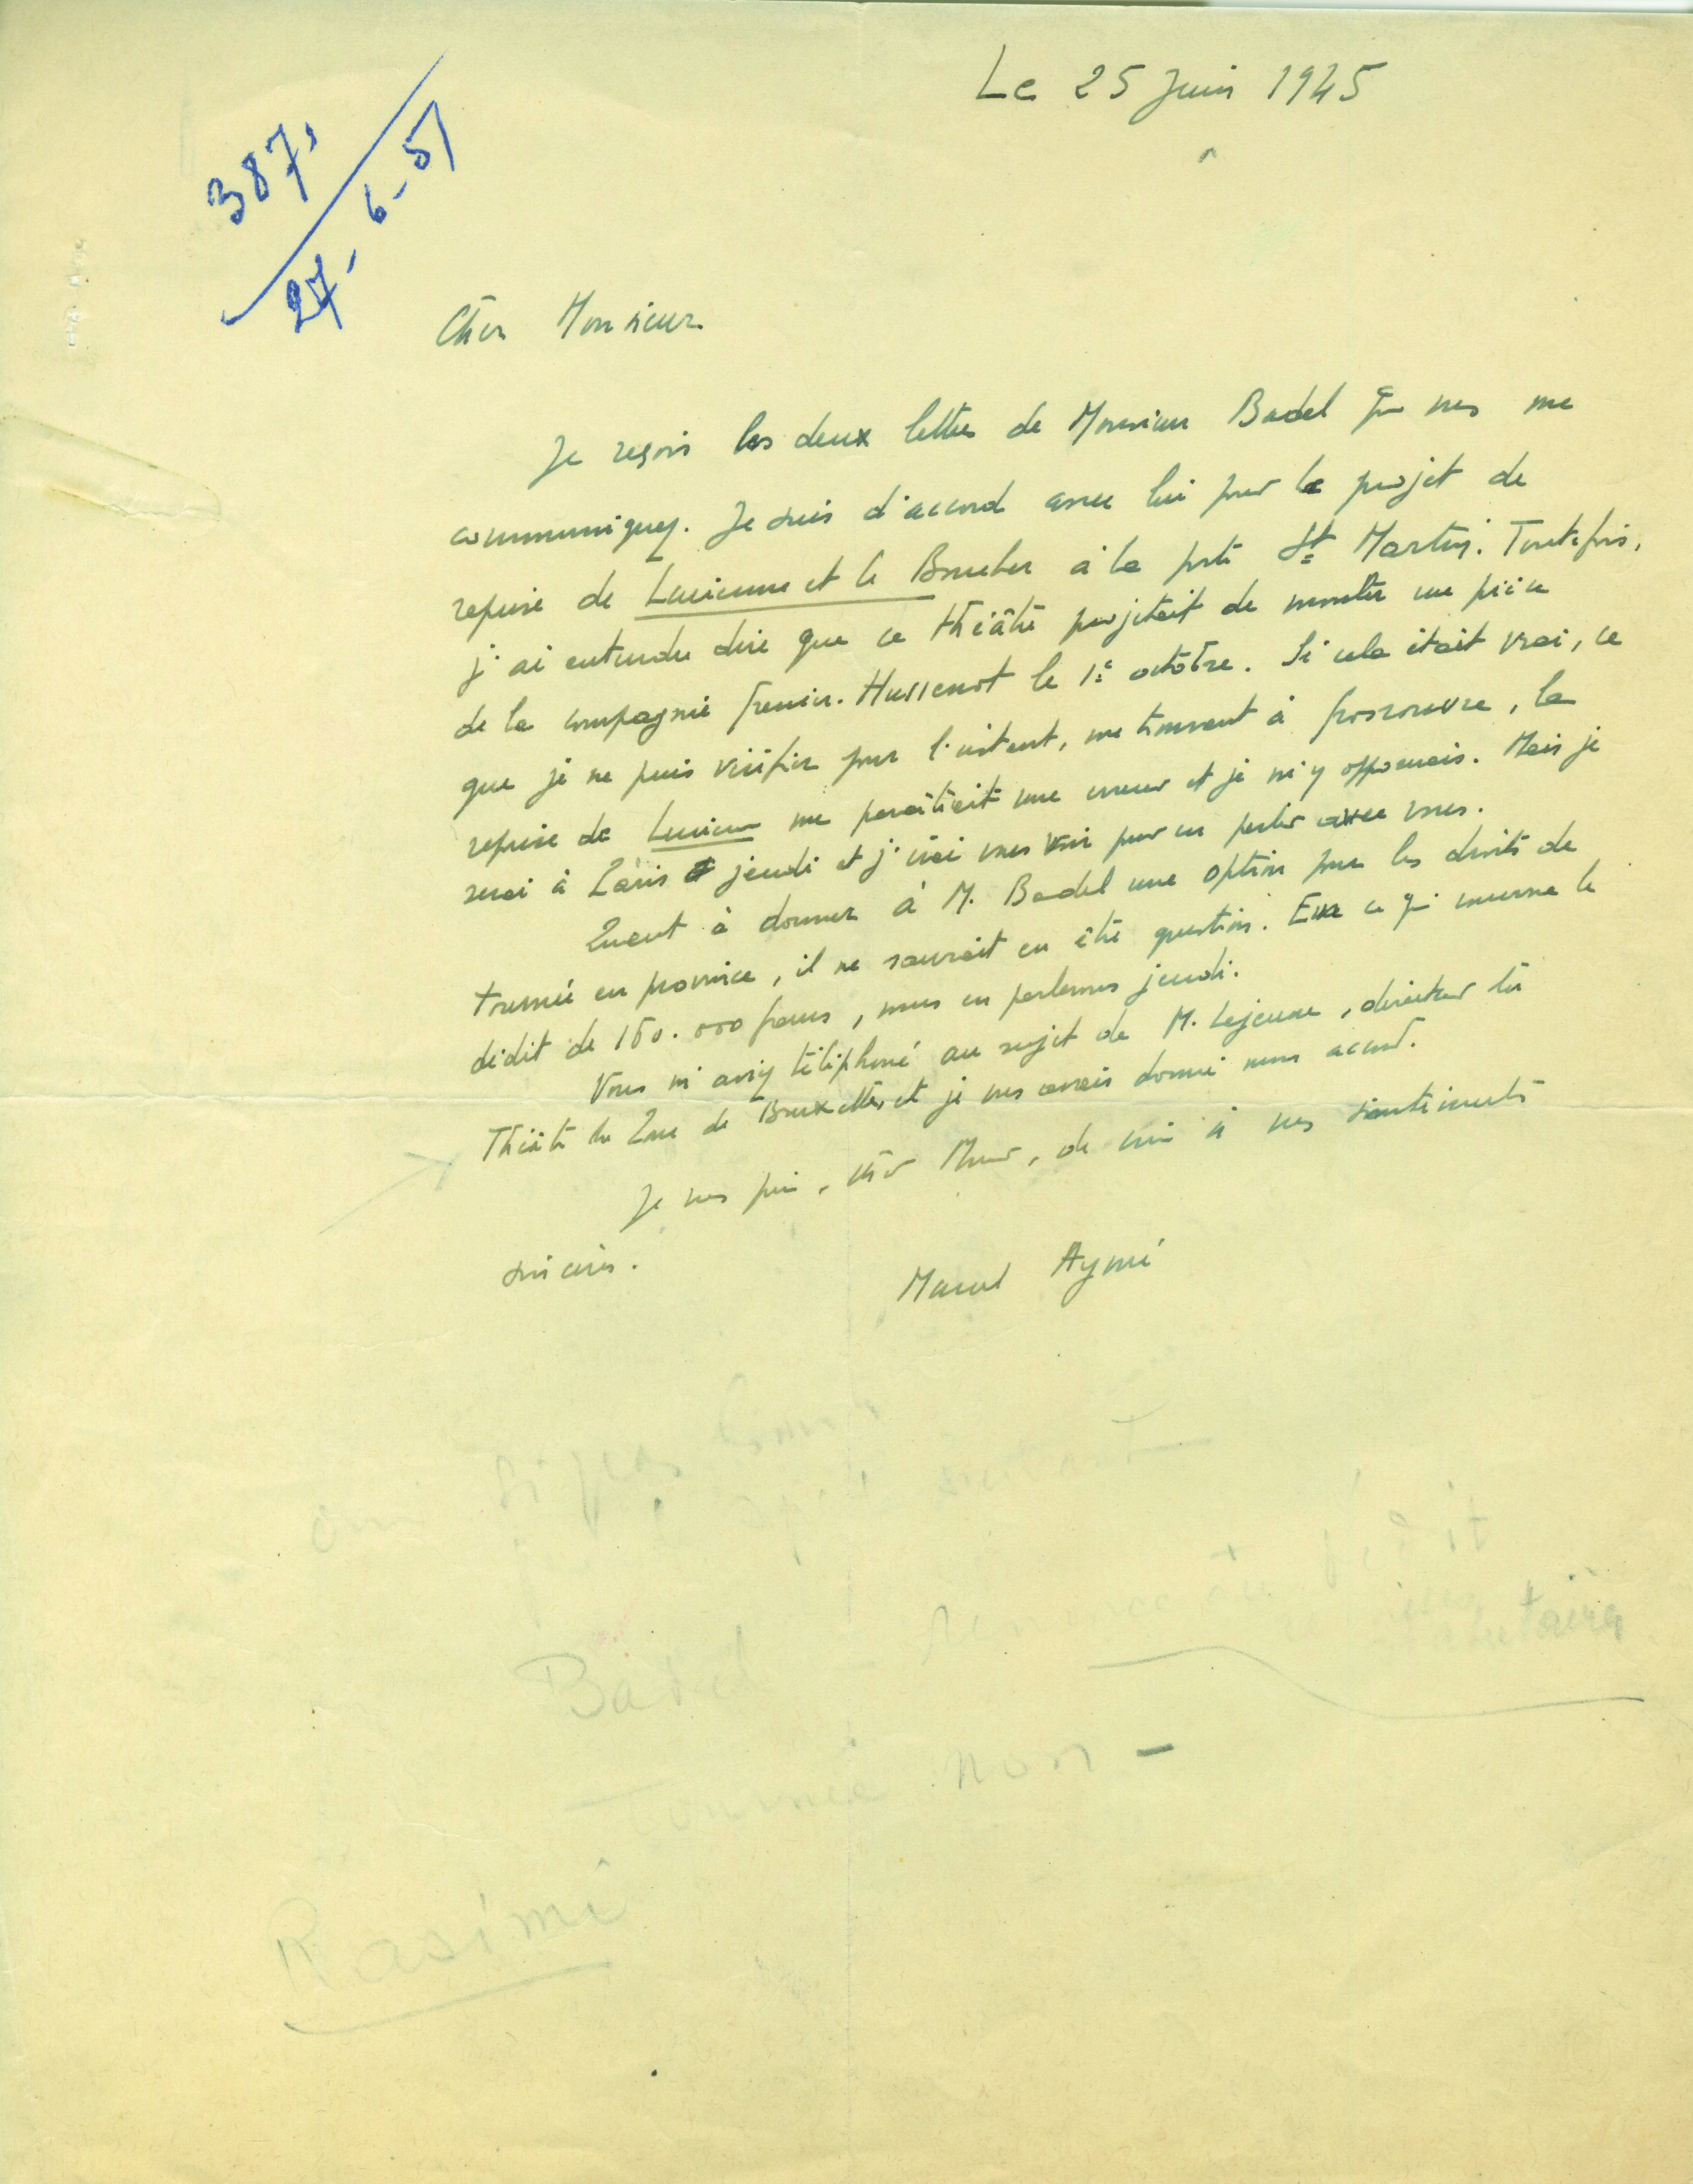 Le 25 Juin 1945
387,
27, 6-51
Cher Monsieur
Je reçois les deux lettres de Monsieur Badel que vous me
communiquez. Je suis d'accord avec lui pour le projet de
reprise de Lucienne et le Boucher à la porte St Martin. Toutefois,
j'ai entendu dire que ce théâtre projetait de monter une pièce
de la compagnie Grenier-Hussenot le 1e octobre. Si cela était vrai, ce
que je ne puis vérifier pour l'instant, me trouvant à Grosrouvre, la
reprise de Lucienne me paraîtrait une erreur et je m'y opposerais. Mais je
serai à Paris jeudi et j'irai vous voir pour en parler avec vous.
Quant à donner à M. Badel une option pour les droits de
tournée en province, il ne saurait en être question. En ce qui concerne le
dédit de 150.000 francs, nous en parlerons jeudi.
Vous m'aviez téléphoné au sujet de M. Lejeune, directeur du
Théâtre du Parc de Bruxelles et je vous avais donné mon accord.
Je vous prie, cher Monsieur, de croire à mes sentiments
sincères.
Marcel Aymé
Si pas
Badel - Renonce au dédit
Tournée non -
Rasimi